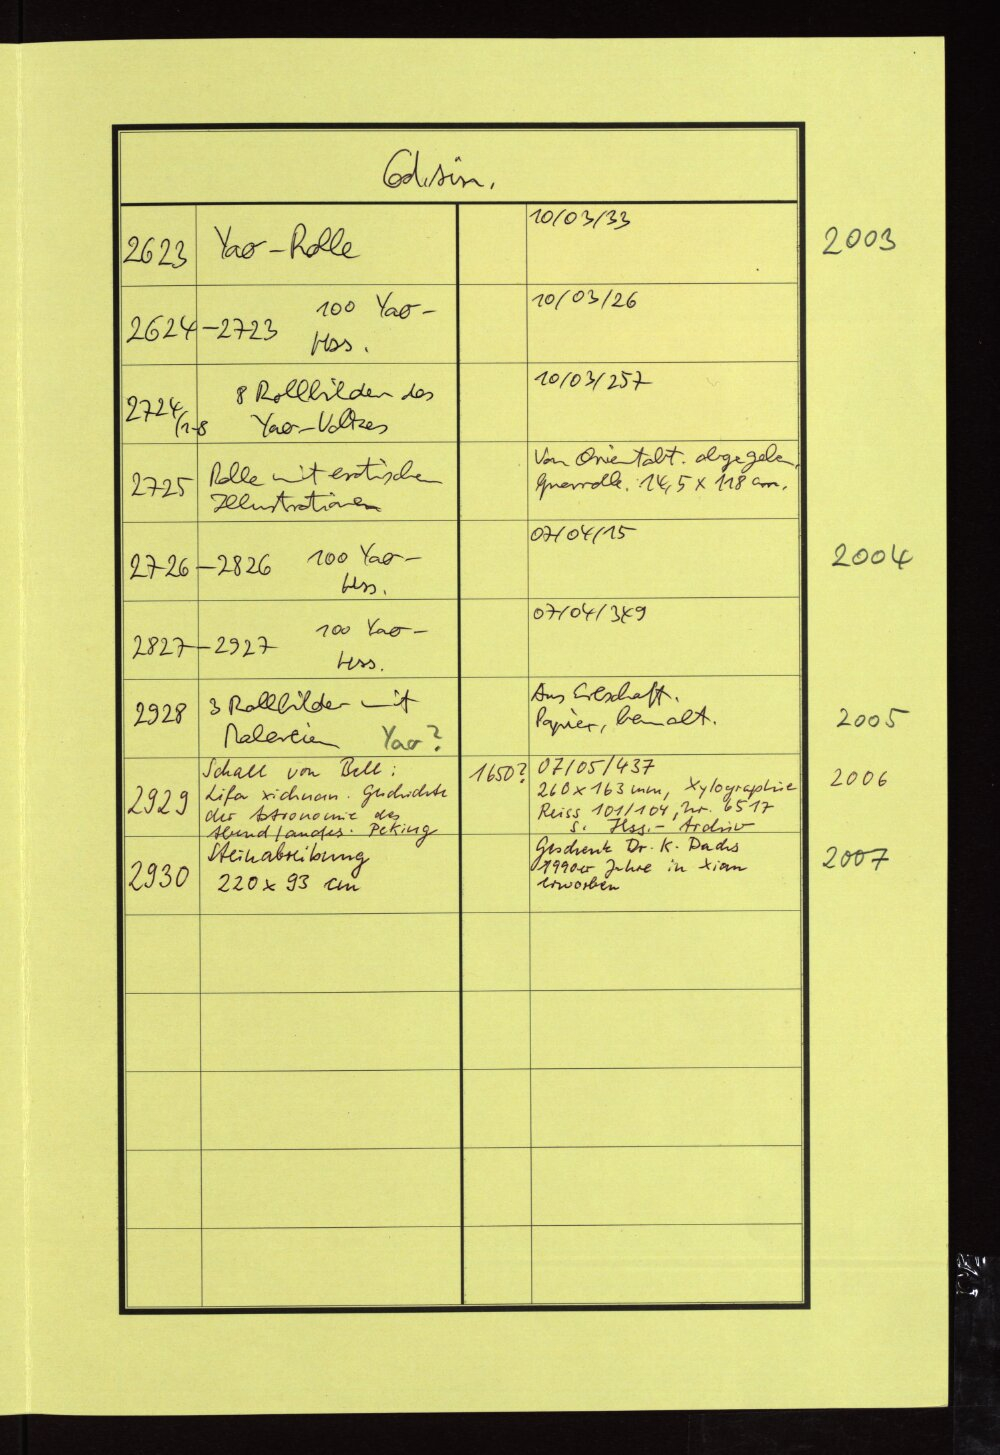 Cod. sin.
2623 Yao-Rolle 10/03/33 2003
2624-2723 100 Yao-
Hss. 10/03/26
2724/1-8 8 Rollbilder des
Yao-Volkes 10/03/257
2725 Rolle mit erotischen
Illustrationen
Von Orientabt. abgegeben.
Querrolle. 14,5 x 118 cm.
2726-2826 100 Yao-
Hss. 07/04/15 2004
2827-2927 100 Yao-
Hss. 07/04/349
2928 3 Rollbilder mit
Malereien Yao?
Aus Erbschaft.
Papier, bemalt. 2005
2929 Schall von Bell:
Lifa xichuan. Geschichte
der Astronomie des
Abendlandes. Peking
1650? 07/05/437 2006
260 x 163 mm, Xylographie
Reiss 101/104, Nr. 6517
s. Hss.-Archiv
2930 Steinabreibung
220 x 93 cm
Geschenk Dr. K. Dachs 2007
1990er Jahre in Xian
erworben